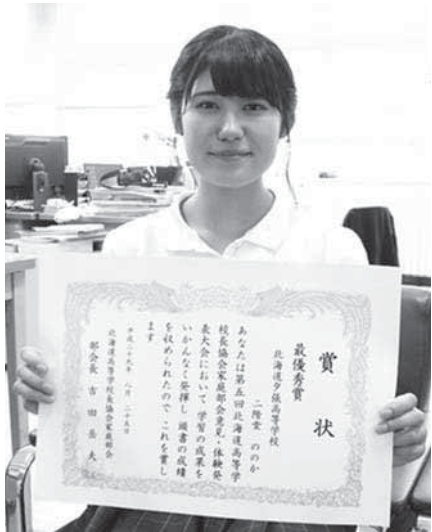 賞状
最優秀賞
北海道夕張高等学校
二階堂 ののか
あなたは第五回北海道高等学
校長協会家庭部会意見・体験発
表大会において 学習の成果を
いかんなく発揮し 頭書の成績
を収められたので これを賞し
ます
平成二十九年 八月 二十五日
北海道高等学校長協会家庭部会
部会長 吉田岳夫